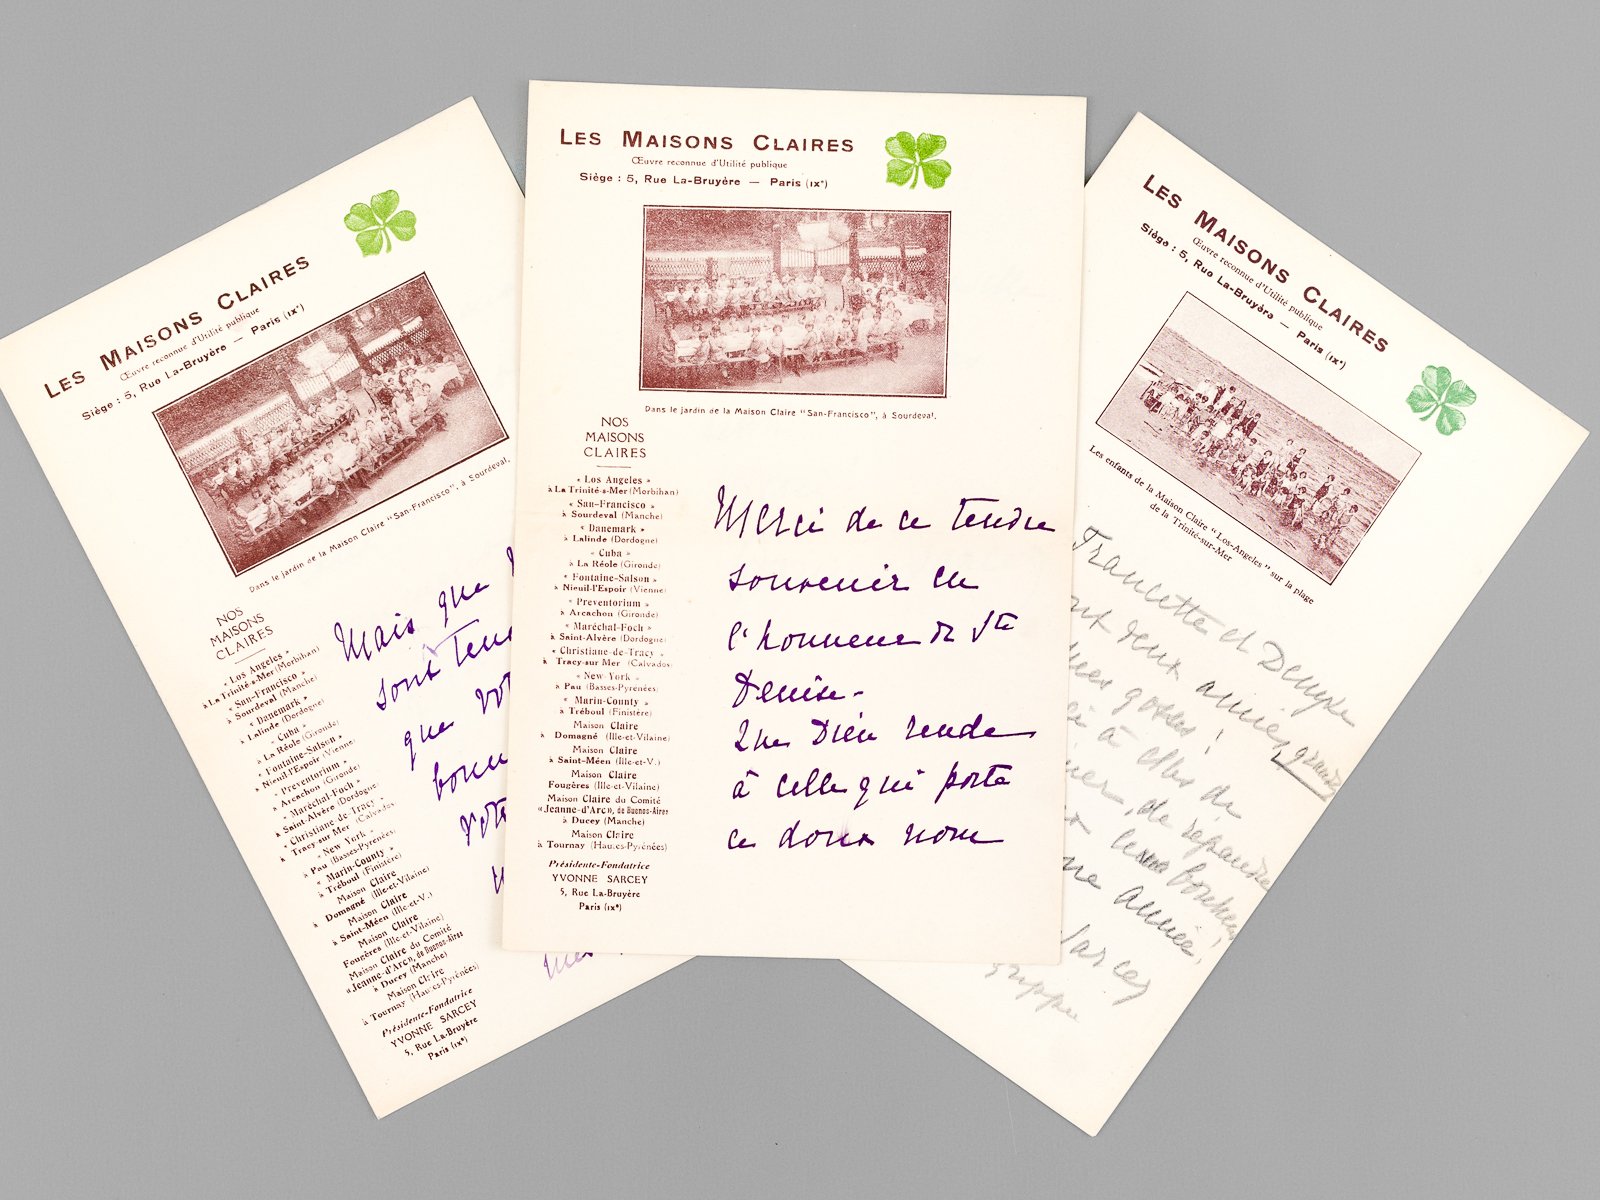 LES MAISONS CLAIRES
Œuvre reconnue d'Utilité publique
Siège : 5, Rue La-Bruyère — Paris (IXᵉ)
Dans le jardin de la Maison Claire "San-Francisco", à Sourdeval.
NOS
MAISONS
CLAIRES
« Los Angeles »
à La Trinité-s-Mer (Morbihan)
« San-Francisco »
à Sourdeval (Manche)
« Danemark »
à Lalinde (Dordogne)
« Cuba »
à La Réole (Gironde)
« Fontaine-Salson »
à Nieuil-l'Espoir (Vienne)
« Preventorium »
à Arcachon (Gironde)
« Maréchal-Foch »
à Saint-Alvère (Dordogne)
« Christiane-de-Tracy »
à Tracy-sur Mer (Calvados)
« New-York »
à Pau (Basses-Pyrénées)
« Marin-County »
à Tréboul (Finistère)
Maison Claire
à Domagné (Ille-et-Vilaine)
Maison Claire
à Saint-Méen (Ille-et-V.)
Maison Claire
Fougères (Ille-et-Vilaine)
Maison Claire du Comité
«Jeanne-d'Arc», de Buenos-Aires
à Ducey (Manche)
Maison Claire
à Tournay (Hautes-Pyrénées)
Présidente-Fondatrice
YVONNE SARCEY
5, Rue La-Bruyère
Paris (IXᵉ)
Mais que
sont
que
LES MAISONS CLAIRES
Œuvre reconnue d'Utilité publique
Siège : 5, Rue La-Bruyère — Paris (IXᵉ)
Dans le jardin de la Maison Claire "San-Francisco", à Sourdeval.
NOS
MAISONS
CLAIRES
« Los Angeles »
à La Trinité-s-Mer (Morbihan)
« San-Francisco »
à Sourdeval (Manche)
« Danemark »
à Lalinde (Dordogne)
« Cuba »
à La Réole (Gironde)
« Fontaine-Salson »
à Nieuil-l'Espoir (Vienne)
« Preventorium »
à Arcachon (Gironde)
« Maréchal-Foch »
à Saint-Alvère (Dordogne)
« Christiane-de-Tracy »
à Tracy-sur Mer (Calvados)
« New-York »
à Pau (Basses-Pyrénées)
« Marin-County »
à Tréboul (Finistère)
Maison Claire
à Domagné (Ille-et-Vilaine)
Maison Claire
à Saint-Méen (Ille-et-V.)
Maison Claire
Fougères (Ille-et-Vilaine)
Maison Claire du Comité
«Jeanne-d'Arc», de Buenos-Aires
à Ducey (Manche)
Maison Claire
à Tournay (Hautes-Pyrénées)
Présidente-Fondatrice
YVONNE SARCEY
5, Rue La-Bruyère
Paris (IXᵉ)
Merci de ce tendre
souvenir en
l'honneur de Ste
Denise -
Que Dieu rende
à celle qui porte
ce doux nom
LES MAISONS CLAIRES
Œuvre reconnue d'Utilité publique
Siège : 5, Rue La-Bruyère — Paris (IXᵉ)
Les enfants de la Maison Claire "Los-Angeles" sur la plage
de la Trinité-sur-Mer
Francette et Denyse
deux amies,
gosses !
à elles de
de répandre
année,
Sarcey